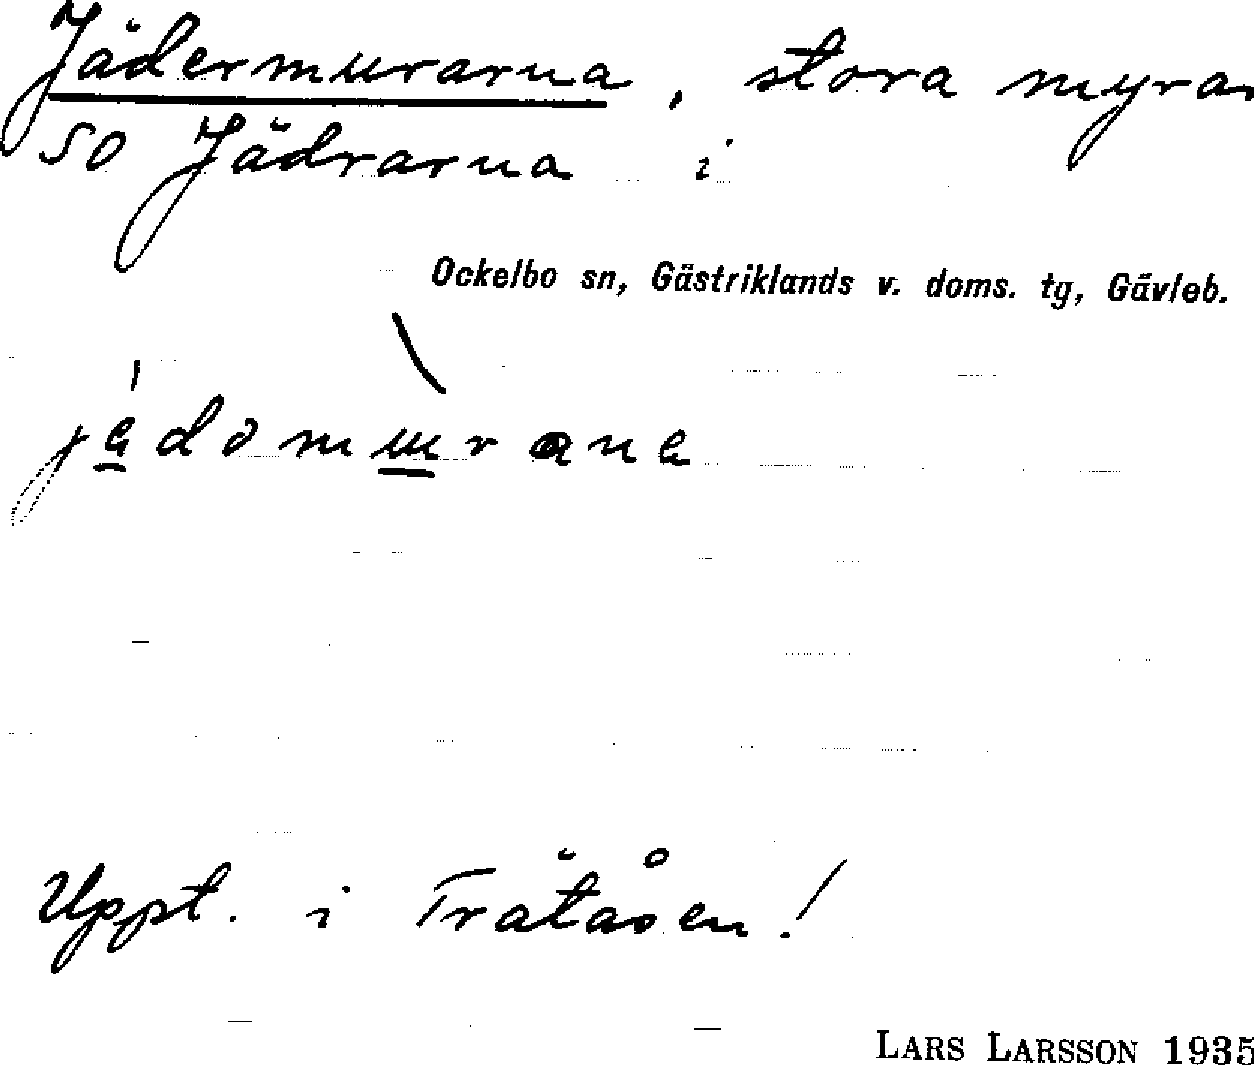 Jädermurarna, stora myrar
SO Jädrarna i
Ockelbo sn, Gästriklands v. doms. tg, Gävleb.
Uppt. i Trätåsen!
LARS LARSSON 1935